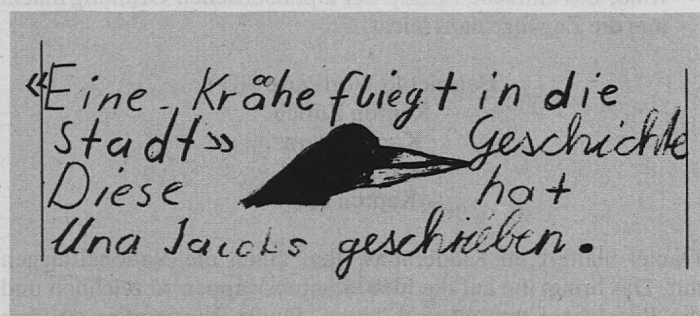 «Eine Krähe fliegt in die
Stadt» Geschichte
Diese hat
Una Jacobs geschrieben.